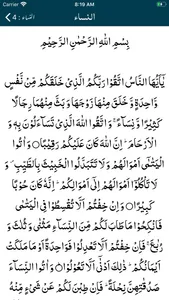 8:19 AM
النساء : 4
النساء
بِسْمِ اللّٰهِ الرَّحْمٰنِ الرَّحِيْمِ
يٰٓاَيُّهَا النَّاسُ اتَّقُوْا رَبَّكُمُ الَّذِيْ خَلَقَكُمْ مِّنْ نَّفْسٍ
وَّاحِدَةٍ وَّخَلَقَ مِنْهَا زَوْجَهَا وَبَثَّ مِنْهُمَا رِجَالًا
كَثِيْرًا وَّنِسَآءً ۚ وَاتَّقُوا اللّٰهَ الَّذِيْ تَسَآءَلُوْنَ بِهٖ وَ
الْاَرْحَامَ ؕ اِنَّ اللّٰهَ كَانَ عَلَيْكُمْ رَقِيْبًا ۞ وَاٰتُوا
الْيَتٰمٰٓى اَمْوَالَهُمْ وَلَا تَتَبَدَّلُوا الْخَبِيْثَ بِالطَّيِّبِ ۪ وَ
لَا تَاْكُلُوْٓا اَمْوَالَهُمْ اِلٰٓى اَمْوَالِكُمْ ؕ اِنَّهٗ كَانَ حُوْبًا
كَبِيْرًا ۞ وَاِنْ خِفْتُمْ اَلَّا تُقْسِطُوْا فِي الْيَتٰمٰى
فَانْكِحُوْا مَا طَابَ لَكُمْ مِّنَ النِّسَآءِ مَثْنٰى وَثُلٰثَ وَ
رُبٰعَ ۚ فَاِنْ خِفْتُمْ اَلَّا تَعْدِلُوْا فَوَاحِدَةً اَوْ مَا مَلَكَتْ
اَيْمَانُكُمْ ؕ ذٰلِكَ اَدْنٰٓى اَلَّا تَعُوْلُوْا ۞ وَاٰتُوا النِّسَآءَ
صَدُقٰتِهِنَّ نِحْلَةً ؕ فَاِنْ طِبْنَ لَكُمْ عَنْ شَيْءٍ مِّنْهُ